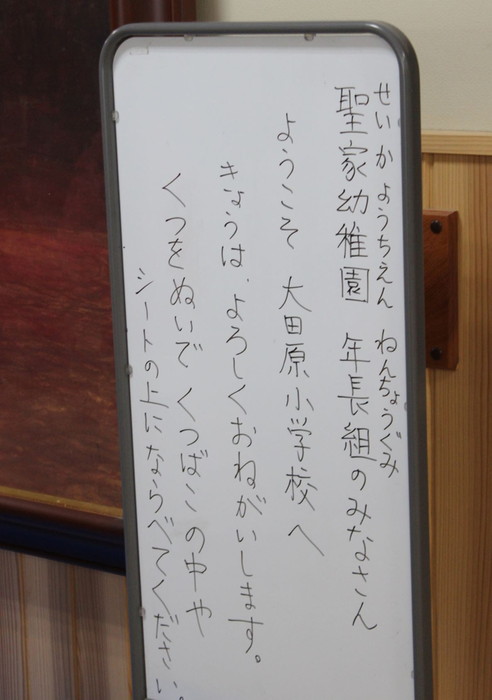 せいかようちえん ねんちょうぐみ
聖家幼稚園 年長組のみなさん
ようこそ 大田原小学校へ
きょうは、よろしくおねがいします。
くつをぬいで くつばこの中や
シートの上にならべてください。